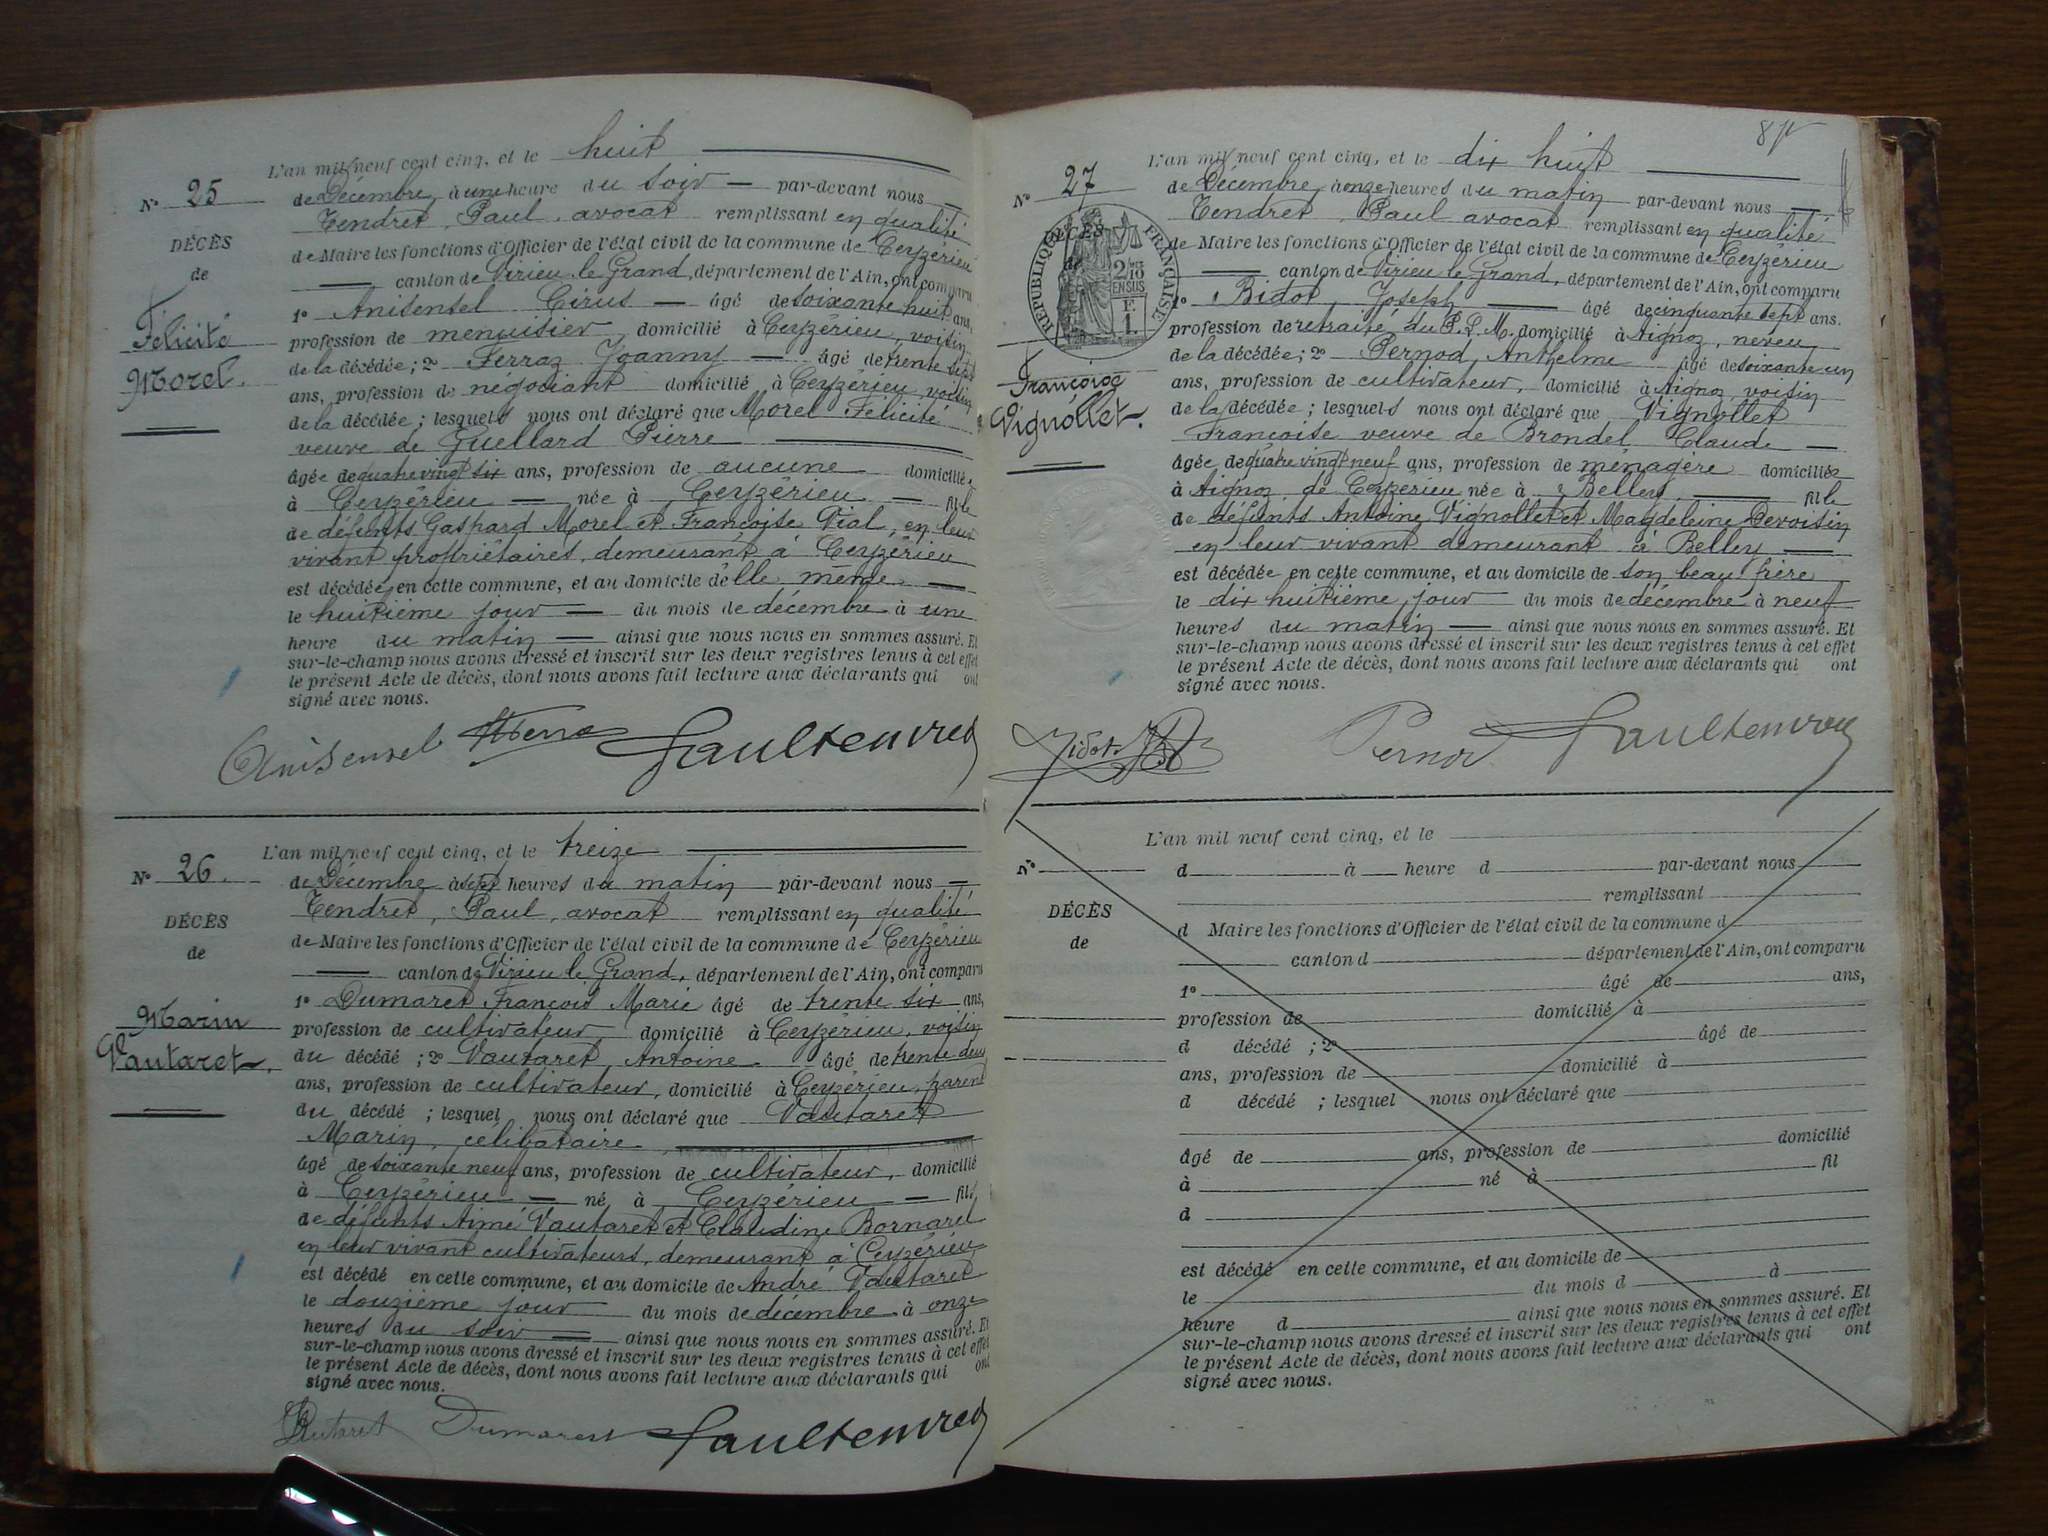 L'an mil neuf cent cinq, et le huit
N° 25
de Décembre à une heure du soir par-devant nous
Tendret, Paul, avocat remplissant en qualité
DÉCÈS
de Maire les fonctions d'Officier de l'état civil de la commune de Ceyzérieu
de
canton de Virieu le Grand, département de l'Ain, ont comparu
1° Anisensel Cirus âgé de soixante huit ans,
Félicité
profession de menuisier domicilié à Ceyzérieu, voisin
de la décédée ; 2° Ferraz Joanny âgé de trente
Morel.
ans, profession de négociant domicilié à Ceyzérieu, voisin
de la décédée ; lesquels nous ont déclaré que Morel Félicité
veuve de Guellard Pierre
âgée de quatre vingt six ans, profession de aucune domiciliée
à Ceyzérieu née à Ceyzérieu fille
de défunts Gaspard Morel et Françoise Vial, en leur
vivant propriétaires, demeurant à Ceyzérieu
est décédée en cette commune, et au domicile d'elle même
le huitième jour du mois de décembre à une
heure du matin ainsi que nous nous en sommes assuré. Et
sur-le-champ nous avons dressé et inscrit sur les deux registres tenus à cet effet
le présent Acte de décès, dont nous avons fait lecture aux déclarants qui ont
signé avec nous.
Anisensel
L'an mil neuf cent cinq, et le treize
N° 26.
de Décembre à sept heures du matin par-devant nous
Tendret, Paul, avocat remplissant en qualité
DÉCÈS
de Maire les fonctions d'Officier de l'état civil de la commune de Ceyzérieu
de
canton de Virieu le Grand, département de l'Ain, ont comparu
1° Dumaret François Marie âgé de trente six ans,
Marin
profession de cultivateur domicilié à Ceyzérieu, voisin
Vautaret.
du décédé ; 2° Vautaret Antoine âgé de trente deux
ans, profession de cultivateur, domicilié à Ceyzérieu, parent
du décédé ; lesquel nous ont déclaré que Vautaret
Marin, célibataire
âgé de soixante neuf ans, profession de cultivateur, domicilié
à Ceyzérieu né à Ceyzérieu fils
de défunts Aimé Vautaret et Claudine Bornarel
en leur vivant cultivateurs, demeurant à Ceyzérieu
est décédé en cette commune, et au domicile de André Vautaret
le douzième jour du mois de décembre à onze
heures du soir ainsi que nous nous en sommes assuré. Et
sur-le-champ nous avons dressé et inscrit sur les deux registres tenus à cet effet
le présent Acte de décès, dont nous avons fait lecture aux déclarants qui ont
signé avec nous.
Vautaret Dumarest
L'an mil neuf cent cinq, et le dix huit
N° 27
de Décembre à onze heures du matin par-devant nous
Tendret Paul avocat remplissant en qualité
DÉCÈS
de Maire les fonctions d'Officier de l'état civil de la commune de Ceyzérieu
de
RÉPUBLIQUE FRANÇAISE
canton de Virieu le Grand, département de l'Ain, ont comparu
1° Bidot, Joseph âgé de cinquante sept ans.
profession de retraité du P. L. M. domicilié à Aignoz, neveu
de la décédée ; 2° Pernod, Anthelme âgé de soixante un
Françoise
ans, profession de cultivateur, domicilié à Aignoz, voisin
Vignollet.
de la décédée ; lesquels nous ont déclaré que Vignollet
Françoise veuve de Brondel Claude
âgée de quatre vingt neuf ans, profession de ménagère domiciliée
à Aignoz de Ceyzerieu née à Belley fille
de défunts Antoine Vignollet et Magdeleine Devoisin
en leur vivant demeurant à Belley
est décédée en cette commune, et au domicile de son beau frère
le dix huitième jour du mois de décembre à neuf
heures du matin ainsi que nous nous en sommes assuré. Et
sur-le-champ nous avons dressé et inscrit sur les deux registres tenus à cet effet
le présent Acte de décès, dont nous avons fait lecture aux déclarants qui ont
signé avec nous.
Pernod
L'an mil neuf cent cinq, et le
N°
d à heure d par-devant nous
remplissant
DÉCÈS
d Maire les fonctions d'Officier de l'état civil de la commune d
de
canton d département de l'Ain, ont comparu
1° âgé de ans,
profession de domicilié à
d décédé ; 2° âgé de
ans, profession de domicilié à
d décédé ; lesquel nous ont déclaré que
âgé de ans, profession de domicilié
à né à fil
d
est décédé en cette commune, et au domicile de
le du mois d à
heure d ainsi que nous nous en sommes assuré. Et
sur-le-champ nous avons dressé et inscrit sur les deux registres tenus à cet effet
le présent Acte de décès, dont nous avons fait lecture aux déclarants qui ont
signé avec nous.